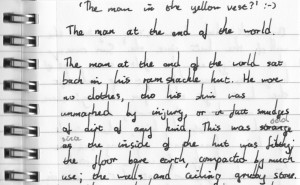 'The man in the yellow vest?' :-)
The man at the end of the world.
The man at the end of the world sat
back in his ramshackle hut. He wore
no clothes, tho his skin was
unmarked by injury, or in fact smudges
odd
of dirt of any kind. This was strange
since
as the inside of the hut was filthy;
the floor bare earth, compacted by much
use; the walls and ceiling grubby stone.